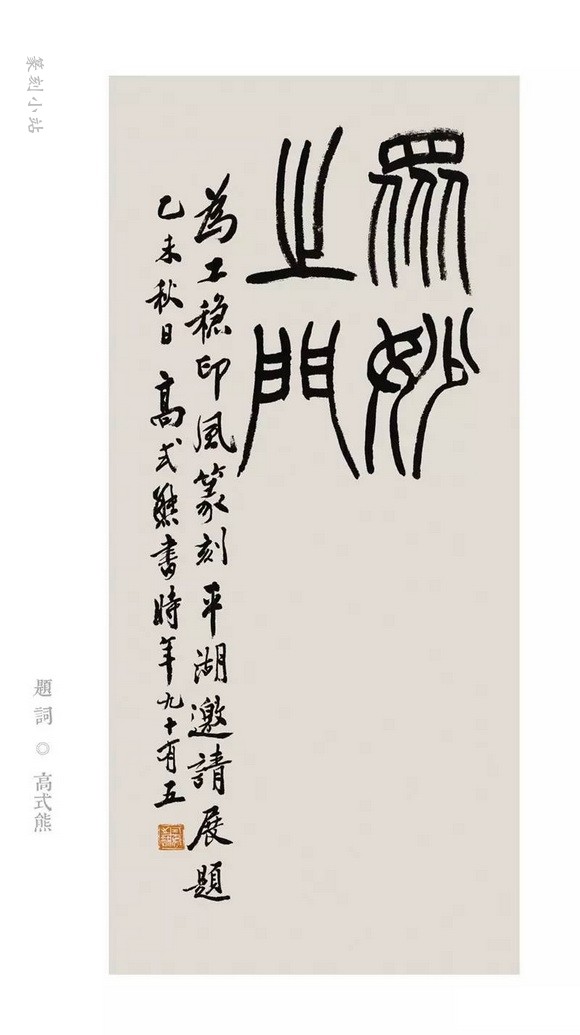 篆刻小站
眾妙
之門
為工穩印風篆刻平湖邀請展題
乙未秋日高式熊書時年九十有五
題詞◎高式熊